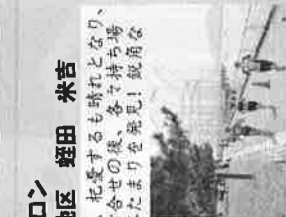 ロン
区 蛭田 米吉
杞憂するも晴れとなり、
合せの後、各々持ち場
たまりを発見！鋭角な